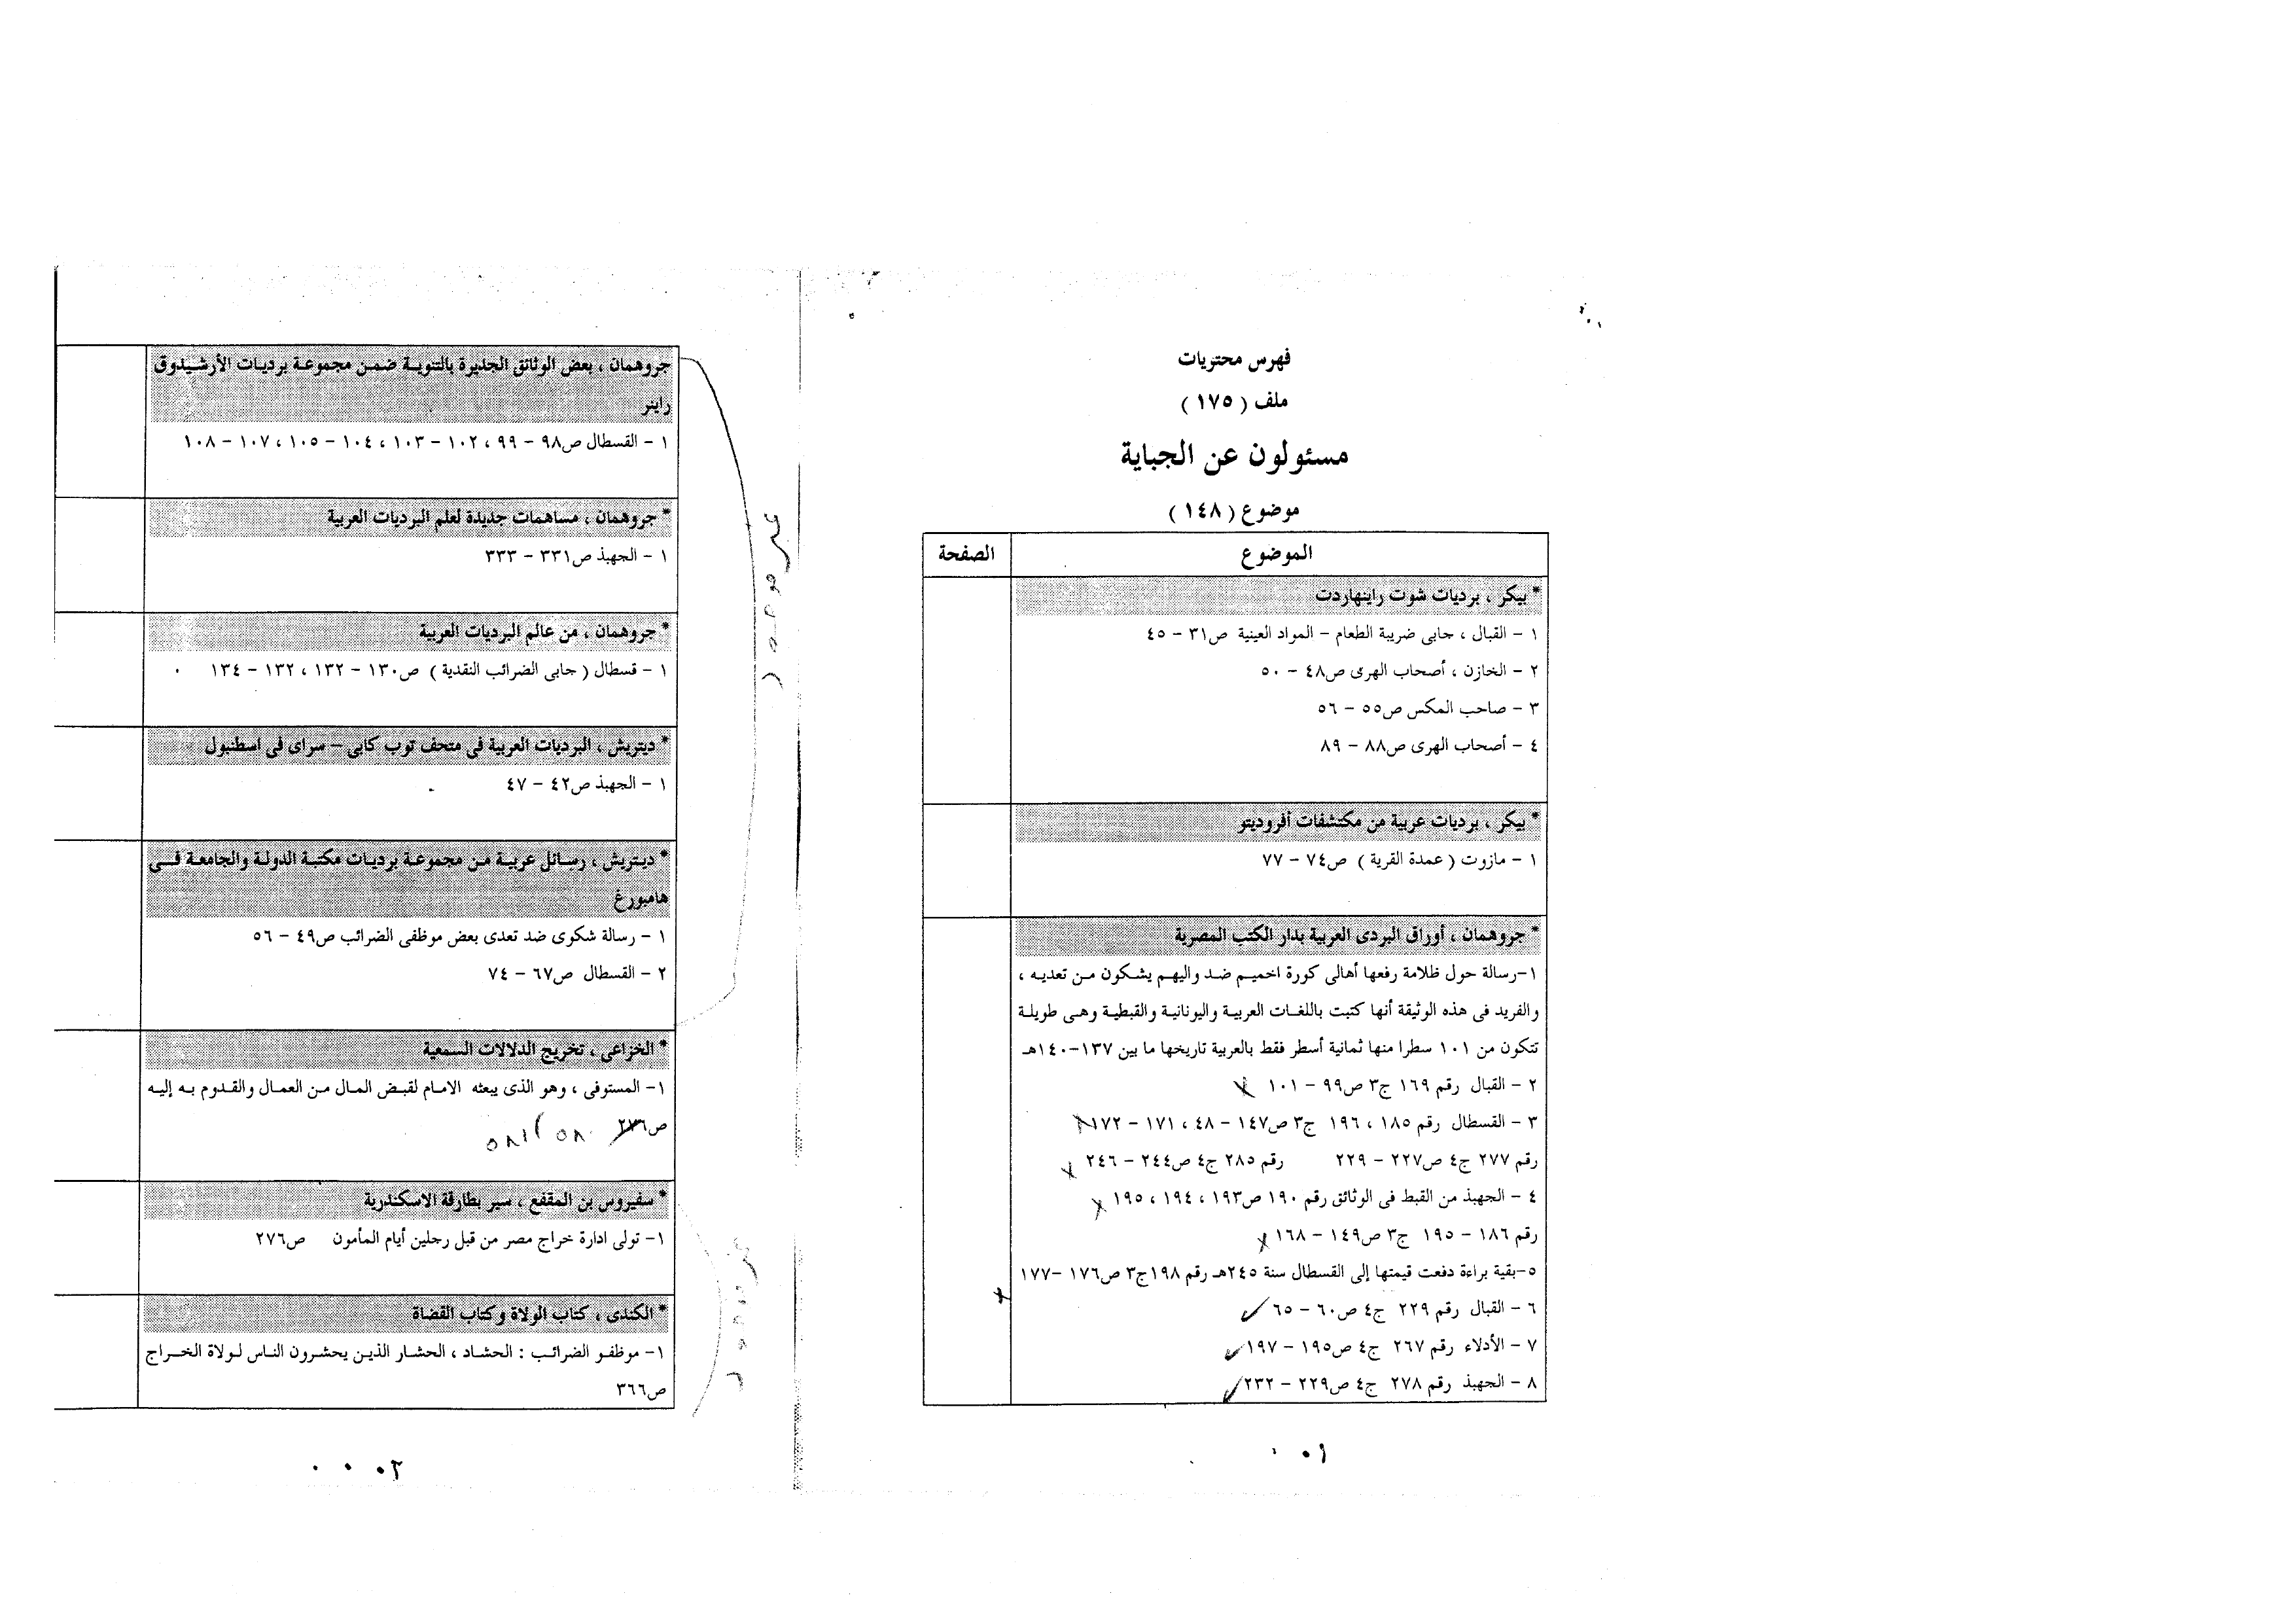 فهرس محتريات
ملف ( ١٧٥ )
مسئولون عن الجباية
موضوع ( ١٤٨ )
الموضوع
الصفحة
* بيكر ، برديات شوت راينهاردت
١ – القبال ، جابى ضريبة الطعام – المواد العينية ص٣١ – ٤٥
٢ – الخازن ، أصحاب الهرى ص٤٨ – ٥٠
٣ – صاحب المكس ص٥٥ – ٥٦
٤ – أصحاب الهرى ص٨٨ – ٨٩
* بيكر ، برديات عربية من مكتشفات أفروديتو
١ – مازوت ( عمدة القرية ) ص٧٤ – ٧٧
* جروهمان ، أوراق البردى العربية بدار الكتب المصرية
١–رسالة حول ظلامة رفعها أهالى كورة اخميم ضد واليهم يشكون من تعديه ،
والفريد فى هذه الوثيقة أنها كتبت باللغات العربية واليونانية والقبطية وهى طويلة
تتكون من ١٠١ سطرا منها ثمانية أسطر فقط بالعربية تاريخها ما بين ١٣٧–١٤٠هـ
٢ – القبال رقم ١٦٩ ج٣ ص٩٩ – ١٠١
٣ – القسطال رقم ١٨٥ ، ١٩٦ ج٣ ص١٤٧ – ٤٨ ، ١٧١ – ١٧٢
رقم ٢٧٧ ج٤ ص٢٢٧ – ٢٢٩ رقم ٢٨٥ ج٤ ص٢٤٤ – ٢٤٦
٤ – الجهبذ من القبط فى الوثائق رقم ١٩٠ ص١٩٣ ، ١٩٤ ، ١٩٥
رقم ١٨٦ – ١٩٥ ج٣ ص١٤٩ – ١٦٨
٥–بقية براءة دفعت قيمتها إلى القسطال سنة ٢٤٥هـ رقم ١٩٨ج٣ ص١٧٦ –١٧٧
٦ – القبال رقم ٢٢٩ ج٤ ص٦٠ – ٦٥
٧ – الأدلاء رقم ٢٦٧ ج٤ ص١٩٥ – ١٩٧
٨ – الجهبذ رقم ٢٧٨ ج٤ ص٢٢٩ – ٢٣٢
٠١
جروهمان ، بعض الوثائق الجديرة بالتنوية ضمن مجموعة برديات الأرشيدوق
راينر
١ – القسطال ص٩٨ – ٩٩ ، ١٠٢ – ١٠٣ ، ١٠٤ – ١٠٥ ، ١٠٧ – ١٠٨
* جروهمان ، مساهمات جديدة لعلم البرديات العربية
١ – الجهبذ ص٣٣١ – ٣٣٣
* جروهمان ، من عالم البرديات العربية
١ – قسطال ( جابى الضرائب النقدية ) ص١٣٠ – ١٣٢ ، ١٣٢ – ١٣٤
* ديتريش ، البرديات العربية فى متحف توب كابى – سراى فى اسطنبول
١ – الجهبذ ص٤٢ – ٤٧
* ديتريش ، رسائل عربية من مجموعة برديات مكتبة الدولة والجامعة فى
هامبورغ
١ – رسالة شكوى ضد تعدى بعض موظفى الضرائب ص٤٩ – ٥٦
٢ – القسطال ص٦٧ – ٧٤
غير موجود
* الخزاعى ، تخريج الدلالات السمعية
١– المستوفى ، وهو الذى يبعثه الامام لقبض المال من العمال والقدوم به إليه
ص
* سفيروس بن المقفع ، سير بطارقة الاسكندرية
١– تولى ادارة خراج مصر من قبل رجلين أيام المأمون ص٢٧٦
* الكندى ، كتاب الولاة وكتاب القضاة
١– موظفو الضرائب : الحشاد ، الحشار الذين يحشرون الناس لولاة الخراج
ص٣٦٦
غير موجود
٠٢